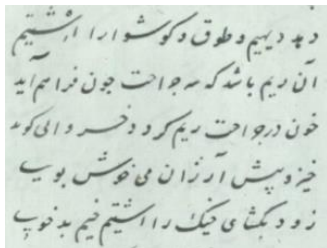 دید دیهیم و طوق و گوشوارا اشتیم
آن ریم باشد که سر جراحت چون فراهم آید
خون در جراحت ریم کرد و خسروانی کوید
خیز و پیش آر زان می خوش بوی
زود بکشای خیک را اشتیم خیم بد خوی